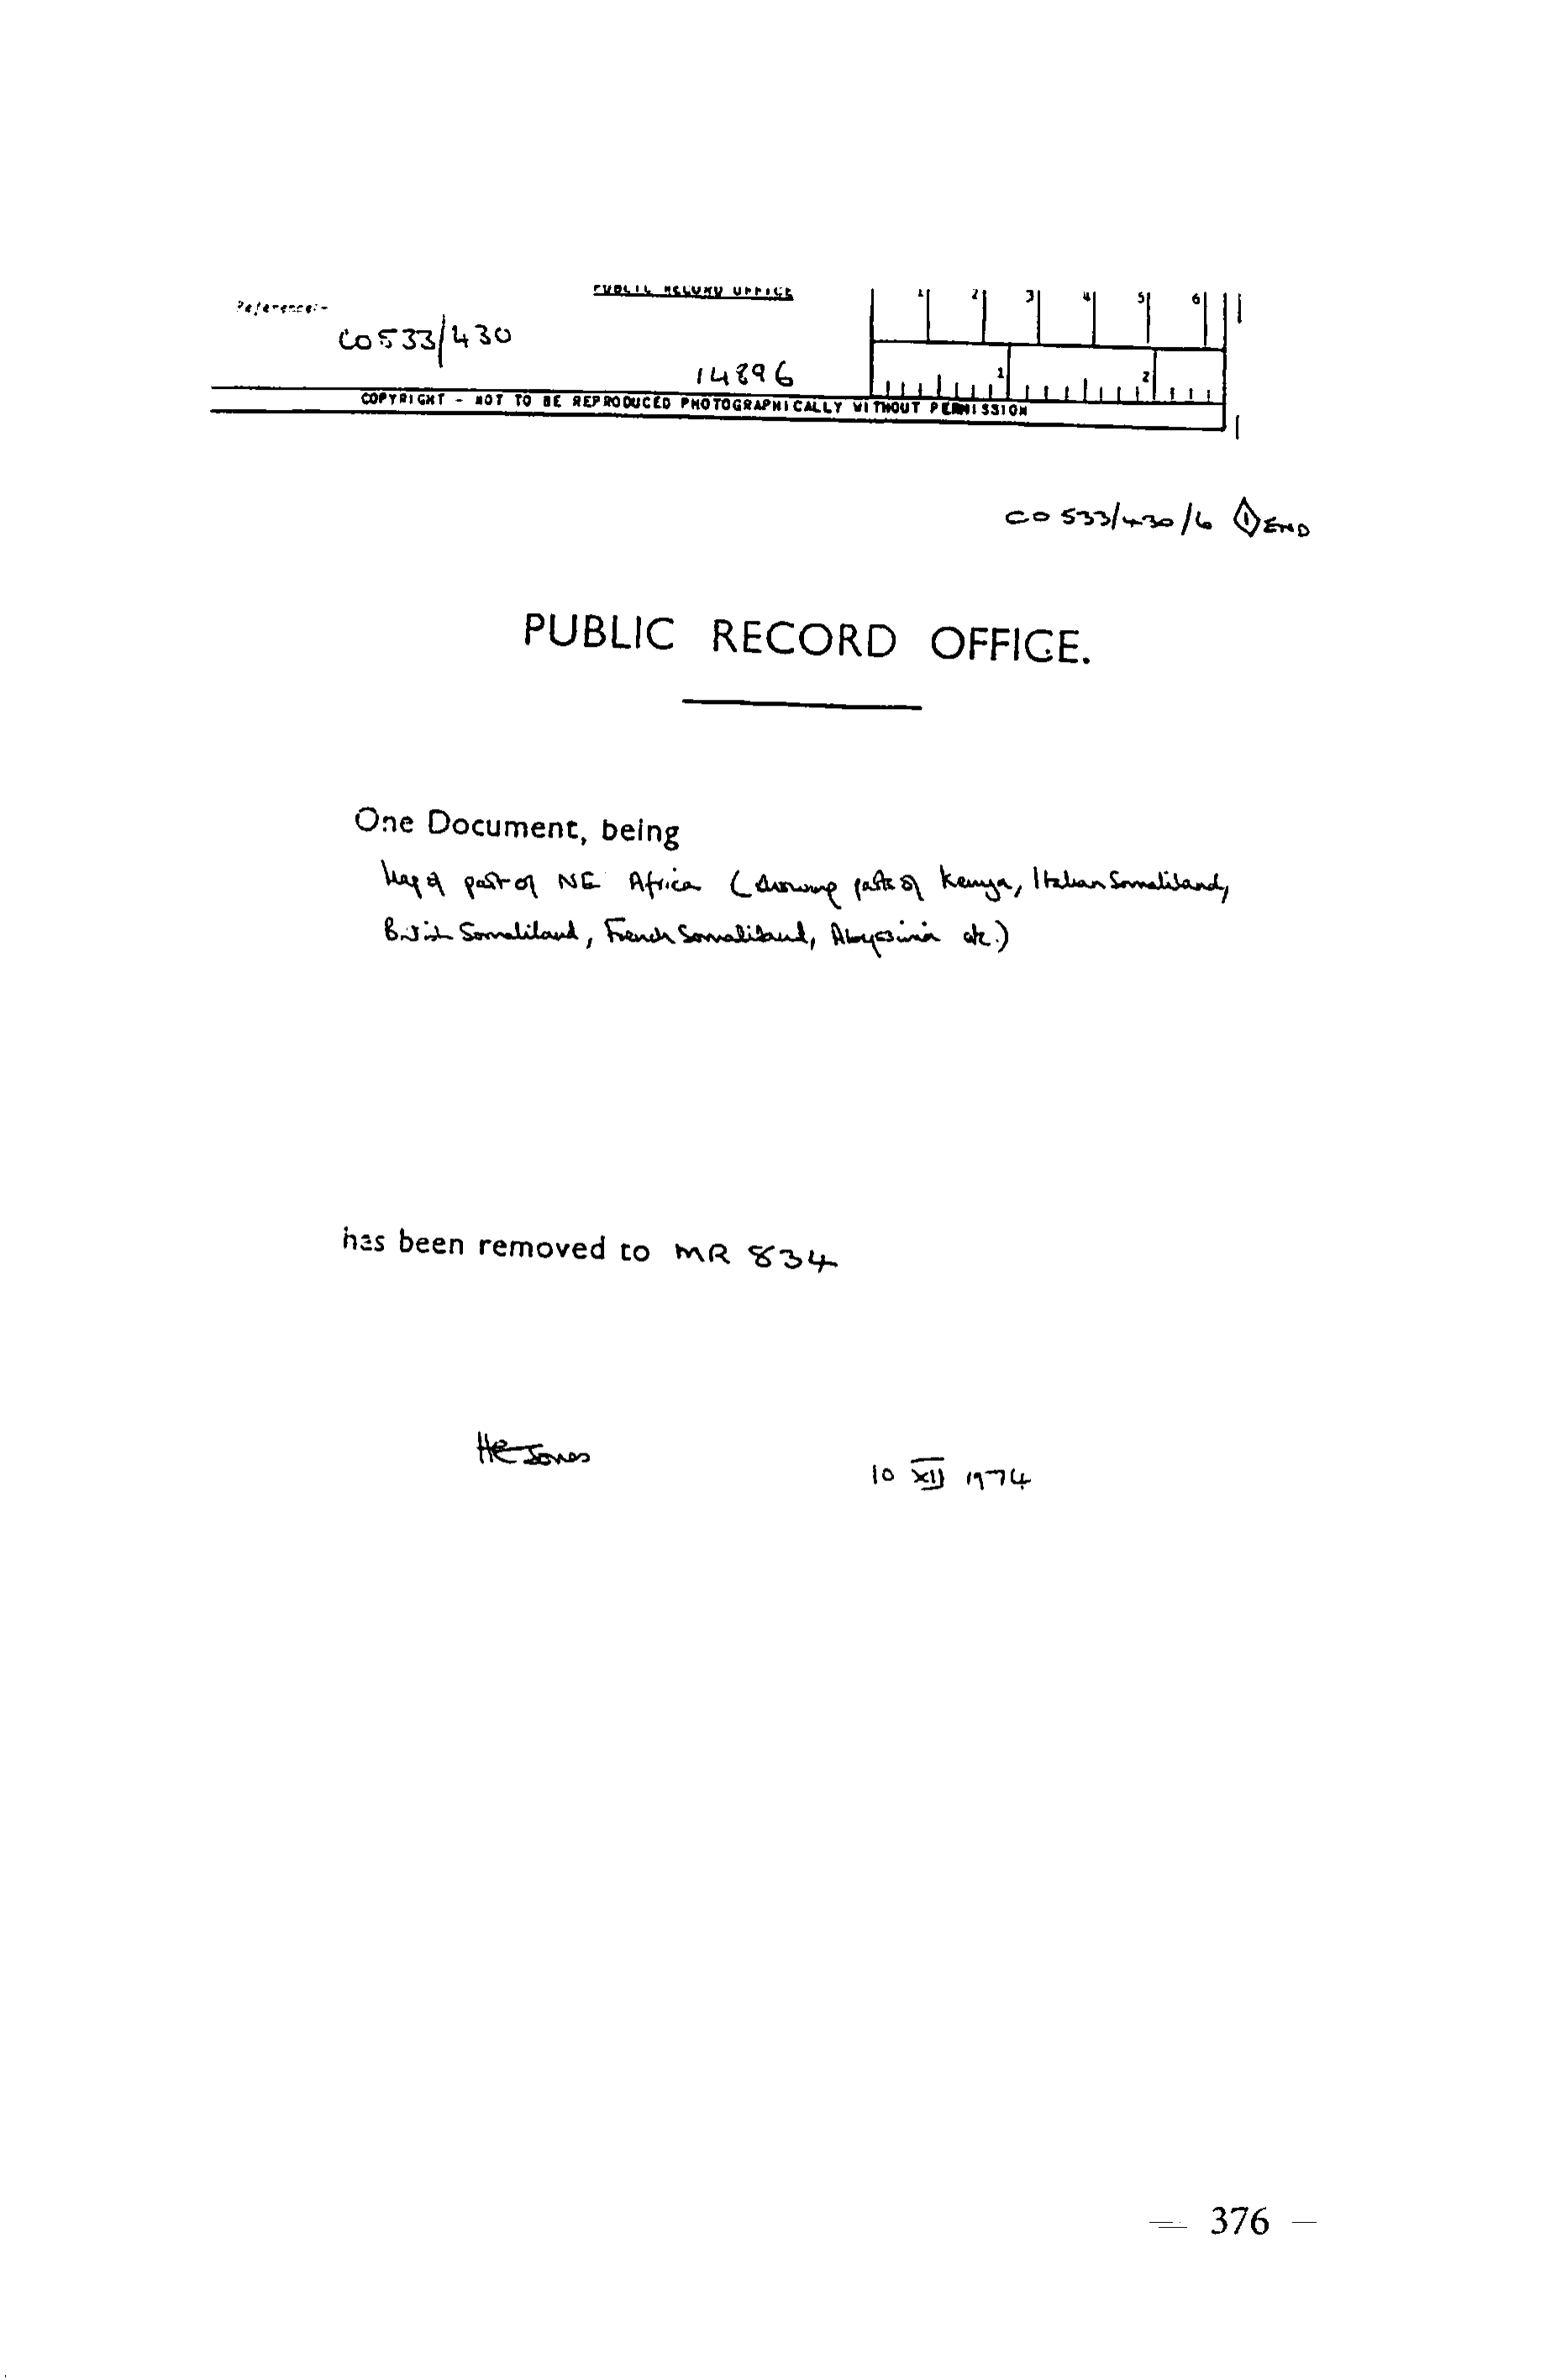 PUBLIC RECORD OFFICE
1 2 3 4 5 6
Reference:-
CO 533/430
14896
1 2
COPYRIGHT - NOT TO BE REPRODUCED PHOTOGRAPHICALLY WITHOUT PERMISSION
CO 533/430/6 1 END
PUBLIC RECORD OFFICE.
One Document, being
Map of part of NE Africa (showing parts of Kenya, Italian Somaliland,
British Somaliland, French Somaliland, Abyssinia etc.)
has been removed to MR 834
HE Jones
10 XII 1974
— 376 —